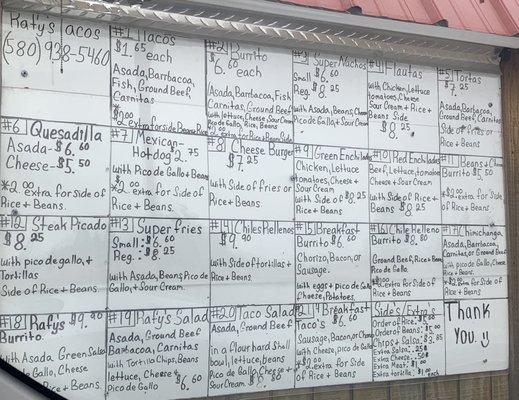 Rafy's Tacos
(580) 938-5460
#1 Tacos
$1.65 each
Asada, Barbacoa,
Fish, Ground Beef,
Carnitas
#2 Burrito
$6.60 each
Asada, Barbacoa, Fish
Carnitas, Ground Beef
with lettuce, cheese, Sour Cream
Pico de Gallo, Rice, Beans
#3 Super Nachos
Small $6.60
Reg. $8.25
with Asada, Beans, Cheese
Pico de Gallo, + Sour Cream
#4 Flautas
with Chicken, Lettuce
tomatoes, Cheese
Sour Cream + Rice +
Beans Side
$8.25
#5 Tortas
$7.25
Asada, Barbacoa,
Carnitas,
Ground Beef
Side of fries or
Rice + Beans
#6 Quesadilla
Asada-$6.60
Cheese-$5.50
*$2.00 extra for Side of
Rice + Beans.
#7 Mexican-
Hotdog $2.75
with Pico de Gallo + Beans
*$2.00 extra for Side of
Rice + Beans.
#8 Cheese Burger
$7.25
with Side of fries or
Rice + Beans.
#9 Green Enchiladas
Chicken, Lettuce
tomatoes, Cheese +
Sour Cream
with Side of $8.25
Rice + Beans
#10 Red Enchiladas
Beef, Lettuce, tomatoes,
Cheese + Sour Cream
with Side of Rice +
Beans $8.25
#11 Beans + Cheese
Burrito $5.50
*$2.00 extra for
Side of Rice +
Beans.
#12 Steak Picado
$8.25
with pico de gallo, +
Tortillas
Side of Rice + Beans.
#13 Super fries
Small: $6.60
Reg.: $8.25
with Asada, Beans, Pico de
Gallo, + Sour Cream.
#14 Chiles Rellenos
$9.90
with Side of tortillas +
Rice + Beans.
#15 Breakfast
Burrito $6.60
Chorizo, Bacon, or
Sausage.
with eggs + Pico de Gallo
Cheese, Potatoes.
#16 Chile Relleno
Burrito $8.80
Ground Beef, Rice + Beans
Pico de Gallo.
*$2.00 extra for Side of
Rice + Beans
#17 Chimichanga
Asada, Barbacoa,
Carnitas, or Ground
Beef
with pico de gallo, Cheese
*$2.00 extra for Side of
Rice + Beans
#18 Rafys $9.90
Burrito.
with Asada, Green Salsa
Pico de Gallo, Cheese
Rice + Beans.
#19 Rafys Salad
Asada, Ground Beef
Barbacoa, Carnitas
with Tortilla Chips, Beans
lettuce, Cheese +
Pico de Gallo $6.60
#20 Taco Salad
Asada, Ground Beef
in a flour hard Shell
bowl, lettuce, beans
Pico de Gallo, Cheese +
Sour Cream. $8.80
#21 Breakfast
Taco's $6.60
Sausage, Bacon, or Chorizo
with Cheese, pico de Gallo
*$2.00 extra for Side
of Rice + Beans
Sides/Extras
Order of Rice:
Order of Beans:
Chips + Salsa:
Extra Salsa:
Extra Cheese:
Extra Meat: $1.00
Extra tortilla: $1.00
Thank
You. :)